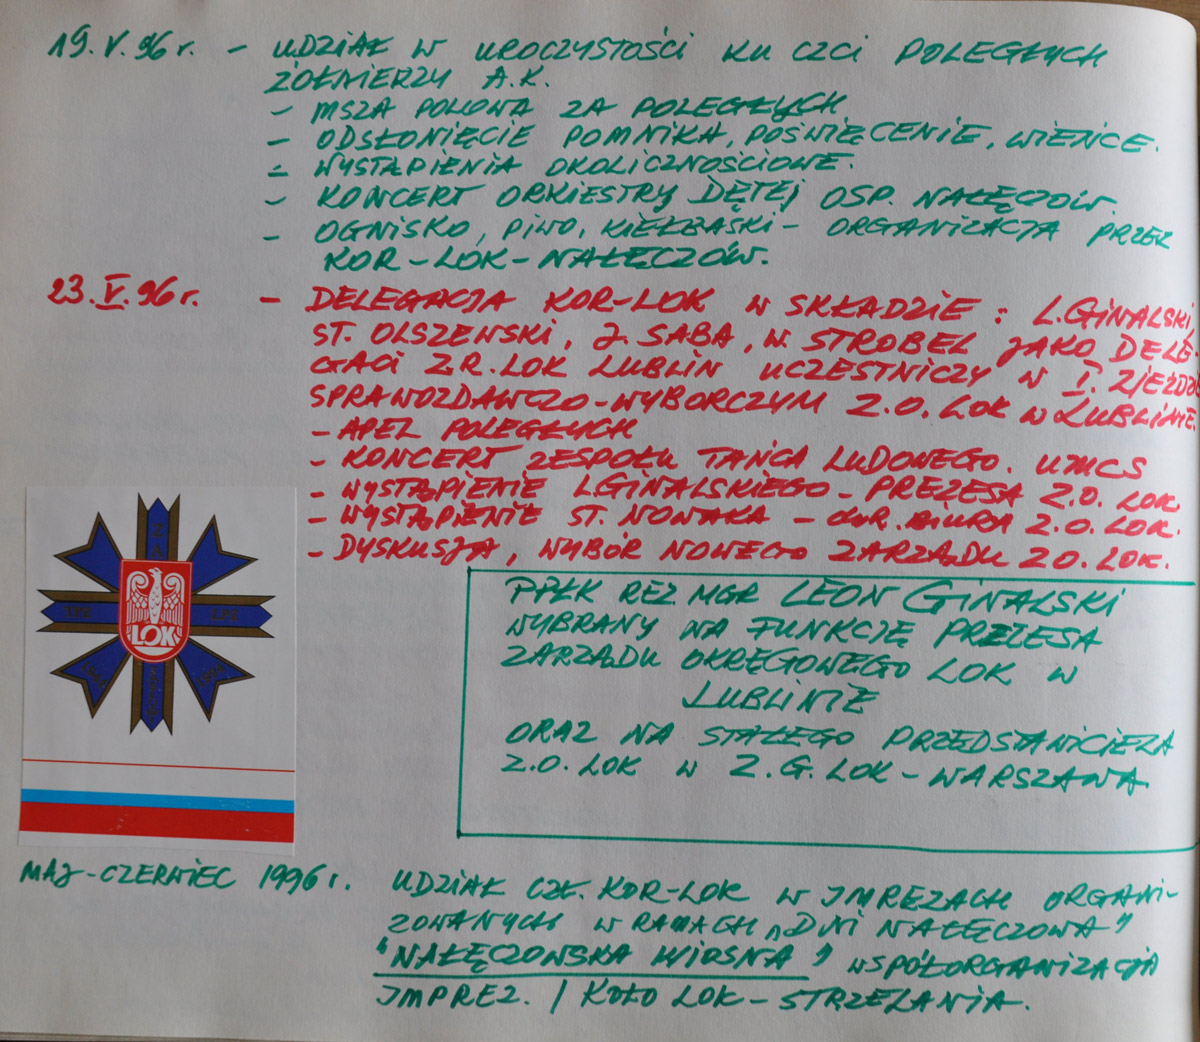 19. V. 96 r. – UDZIAŁ W UROCZYSTOŚCI KU CZCI POLEGŁYCH
ŻOŁNIERZY A.K.
– MSZA POLOWA ZA POLEGŁYCH
– ODSŁONIĘCIE POMNIKA, POŚWIĘCENIE, WIEŃCE.
– WYSTĄPIENIA OKOLICZNOŚCIOWE.
– KONCERT ORKIESTRY DĘTEJ OSP. NAŁĘCZÓW.
– OGNISKO, PIWO, KIEŁBASKI – ORGANIZACJA PRZEZ
KOR – LOK – NAŁĘCZÓW.
23. V. 96 r. – DELEGACJA KOR-LOK W SKŁADZIE: L. GINALSKI,
ST. OLSZEWSKI, J. SABA, W STROBEL JAKO DELE-
GACI Z.R. LOK LUBLIN UCZESTNICZY W I. ZJEŹDZI
SPRAWOZDAWCZO-WYBORCZYM Z.O. LOK W LUBLINIE.
– APEL POLEGŁYCH
– KONCERT ZESPOŁU TAŃCA LUDOWEGO. UMCS
– WYSTĄPIENIE L.GINALSKIEGO – PREZESA Z.O. LOK
– WYSTĄPIENIE ST. NOWAKA – DYR. BIURA Z.O. LOK.
– DYSKUSJA, WYBÓR NOWEGO ZARZĄDU Z.O. LOK.
PPŁK REZ. MGR LEON GINALSKI
WYBRANY NA FUNKCJĘ PREZESA
ZARZĄDU OKRĘGOWEGO LOK W
LUBLINIE
ORAZ NA STAŁEGO PRZEDSTAWICIELA
Z.O. LOK W Z.G. LOK – WARSZAWA.
LOK
MAJ – CZERWIEC 1996 r. UDZIAŁ CZŁ. KOR-LOK W IMREZACH ORGANI-
ZOWANYCH W RAMACH „DNI NAŁĘCZOWA"
"NAŁĘCZOWSKA WIOSNA" WSPÓŁORGANIZACJA
IMPREZ. / KOŁO LOK – STRZELANIA.